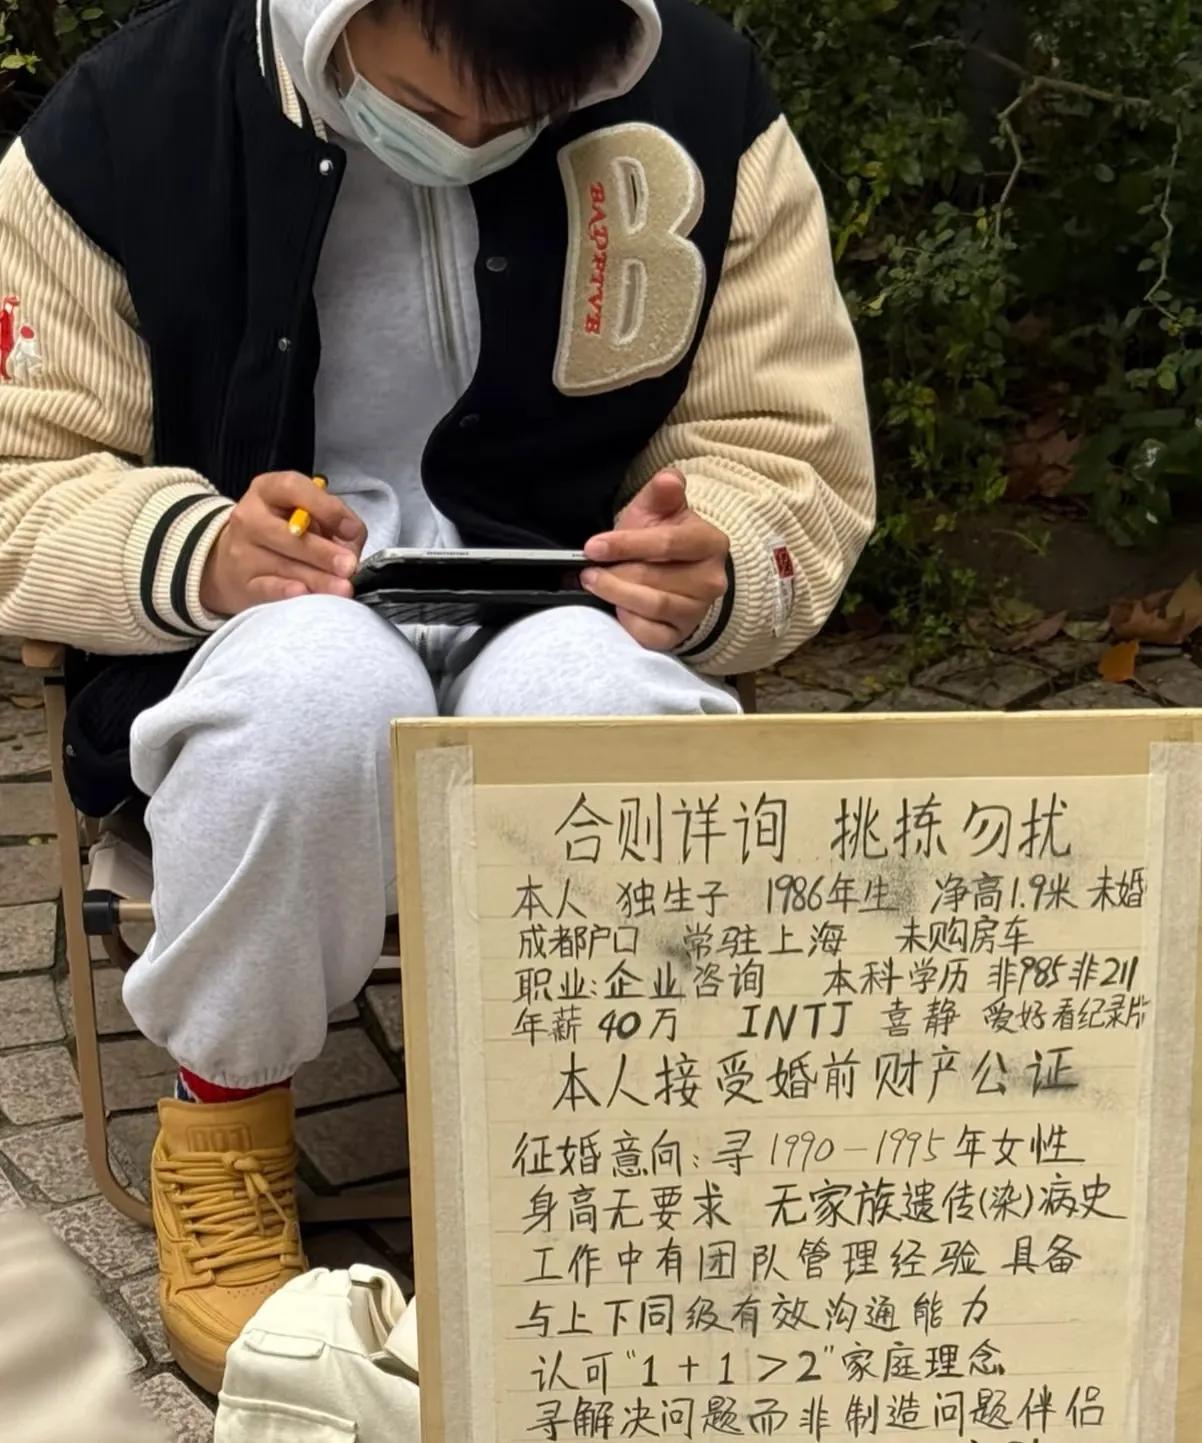 B
BAPTTVE
合则详询 挑拣勿扰
本人 独生子 1986年生 净高1.9米 未婚
成都户口 常驻上海 未购房车
职业:企业咨询 本科学历 非985非211
年薪40万 INTJ 喜静 爱好看纪录片
本人接受婚前财产公证
征婚意向:寻1990-1995年女性
身高无要求 无家族遗传(染)病史
工作中有团队管理经验 具备
与上下同级有效沟通能力
认可"1+1>2"家庭理念
寻解决问题而非制造问题伴侣
001